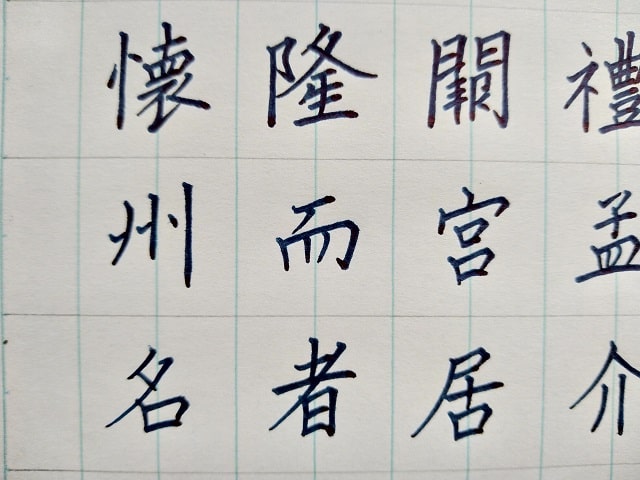 懷隆禮
州而宮孟
名者居介